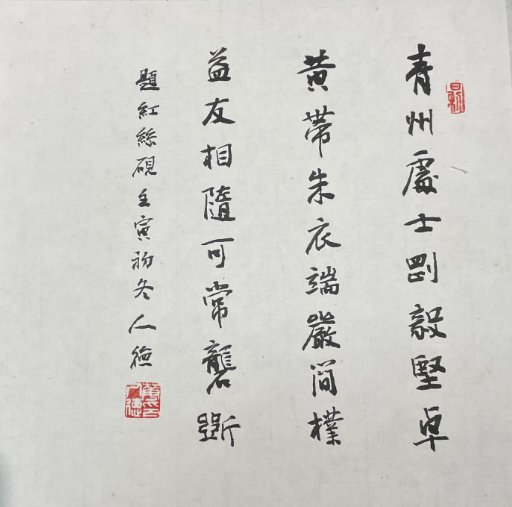 青州處士剛毅堅卓
黃帶朱衣端嚴簡樸
益友相隨可常礲斵
題紅絲硯壬寅初冬人德